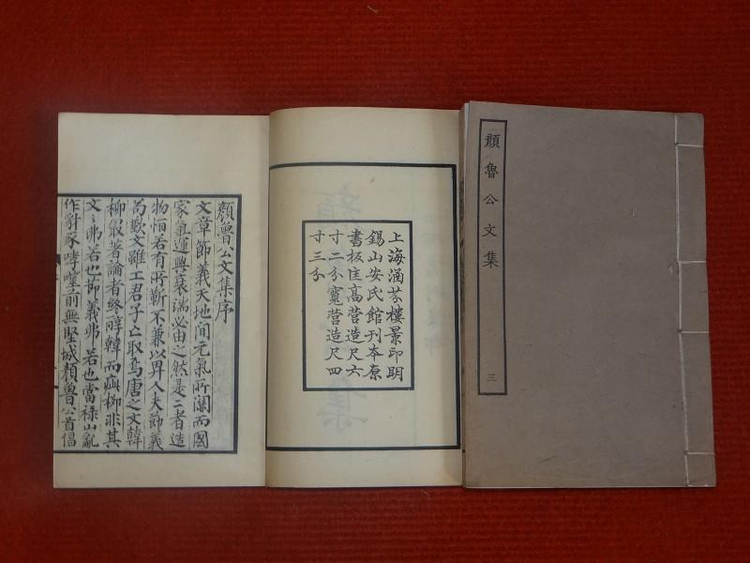 顏魯公文集
三
上海涵芬樓景印明
錫山安氏館刊本原
書板匡高營造尺六
寸二分寬營造尺四
寸三分
顏魯公文集序
文章節義天地間元氣所關而國
家氣運興衰湍必由之然是二者造
物恒若有所靳不兼以畀人夫節義
苟歉文雖工君子亡取焉唐之文韓
柳最著論者終醇韓而疵柳非其
文之弗若也節義弗若也當祿山亂
作豺豕哮噬前無堅城顏魯公首倡